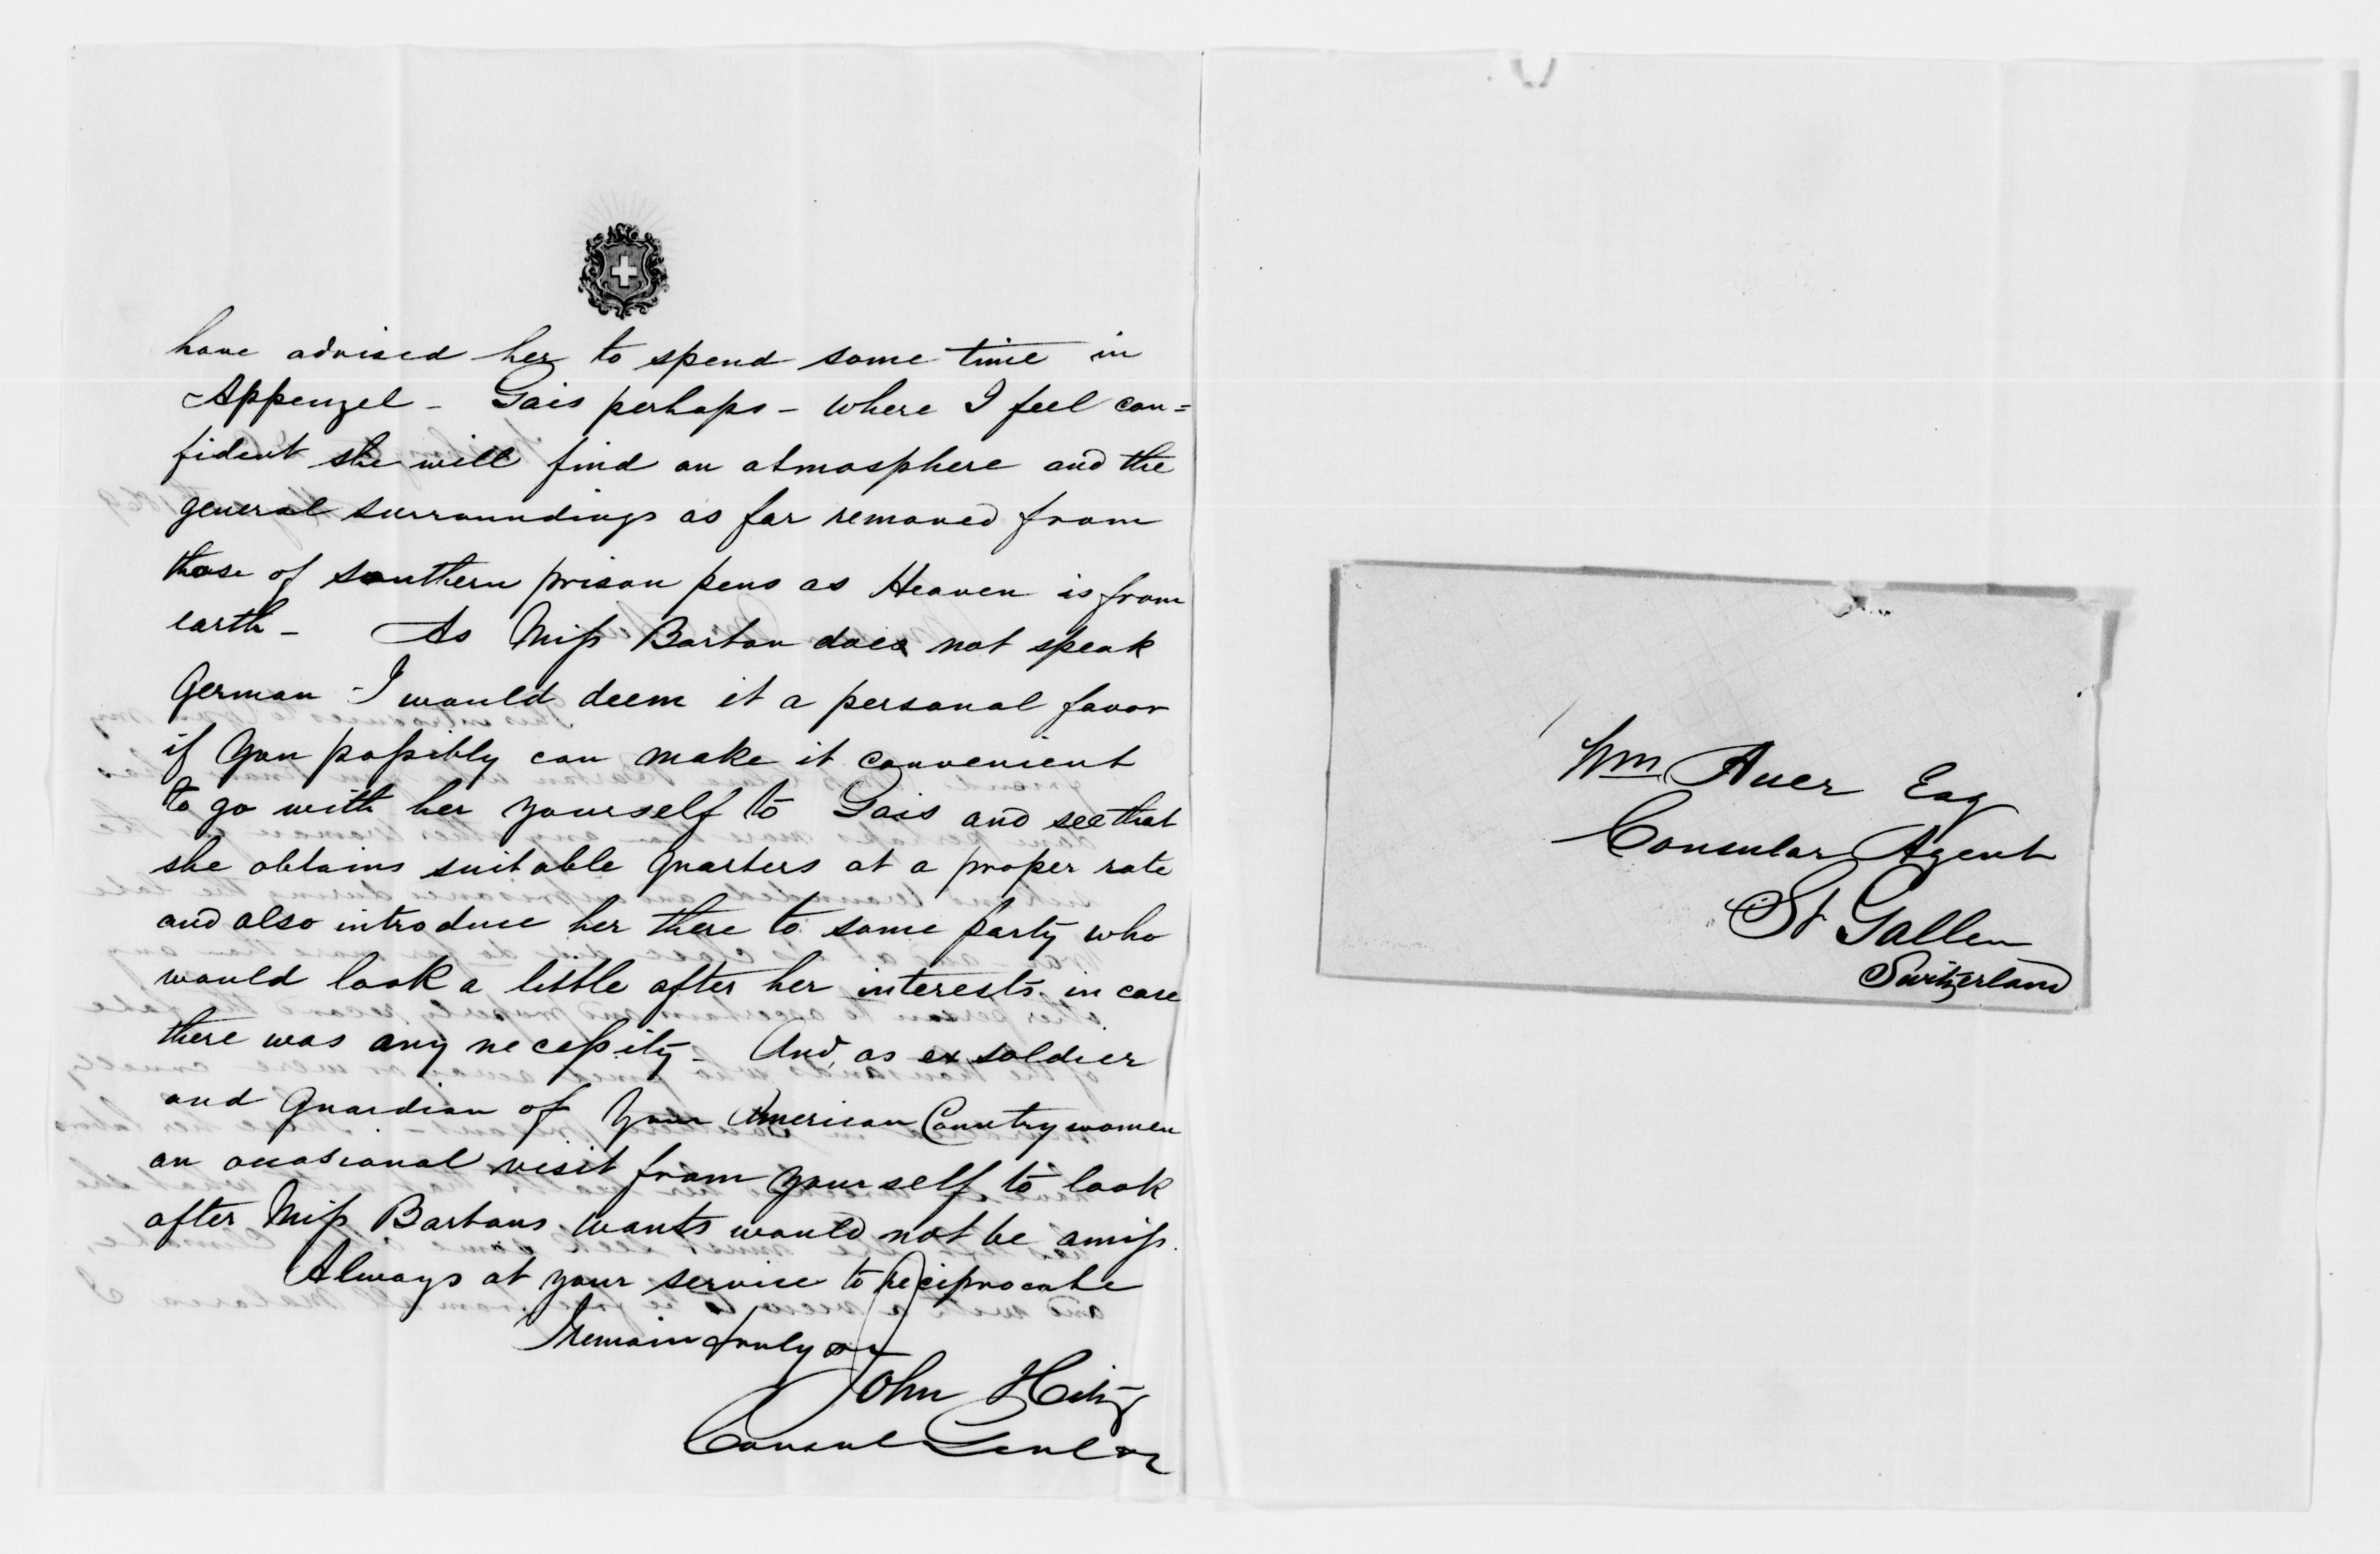 have advised her to spend some time in
Appenzel - Gais perhaps - where I feel con=
fident she will find an atmosphere and the
general surroundings as far removed from
those of southern prison pens as Heaven is from
earth - As Miss Barton does not speak
German - I would deem it a personal favor
if you possibly can make it convenient
to go with her yourself to Gais and see that
she obtains suitable quarters at a proper rate
and also introduce her there to some party who
would look a little after her interests in case
there was any necessity - And, as ex soldier
and guardian of your American Countrywomen
an occasional visit from yourself to look
after Miss Bartons wants would not be amiss.
Always at your service to reciprocate
I remain truly
John Hitz
Consul Genl
Wm Auer Esq
Consular Agent
St Gallen
Switzerland